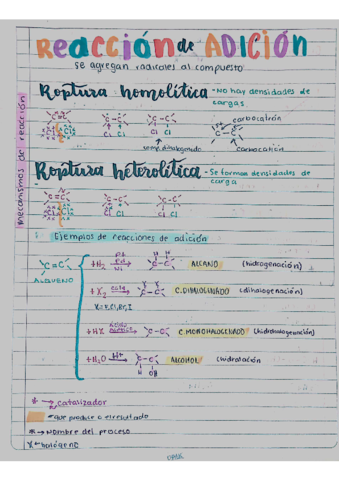 Reacción de ADICIÓN
se agregan radicales al compuesto
mecanismos de reacción
Roptura homolítica - No hay densidades de cargas
C=C C-C C-C carbocatión
Cl Cl Cl Cl C-C
carbocatión
Roptura heterolítica - Se forman densidades de carga
C=C C-C C-C
Cl Cl Cl Cl
Ejemplos de reacciones de adición
C=C
ALQUENO
+H2 Ni C-C ALCANO (hidrogenación)
H H
+X2 C-C C. DIHALOGENADO (dihalogenación)
X=F,Cl,Br,I
+HX C-C C. MONOHALOGENADO (hidrohalogenación)
+H2O H+ C-C ALCOHOL (hidratación)
H OH
* → catalizador
que produce o el resultado
* → Nombre del proceso
X → halógeno